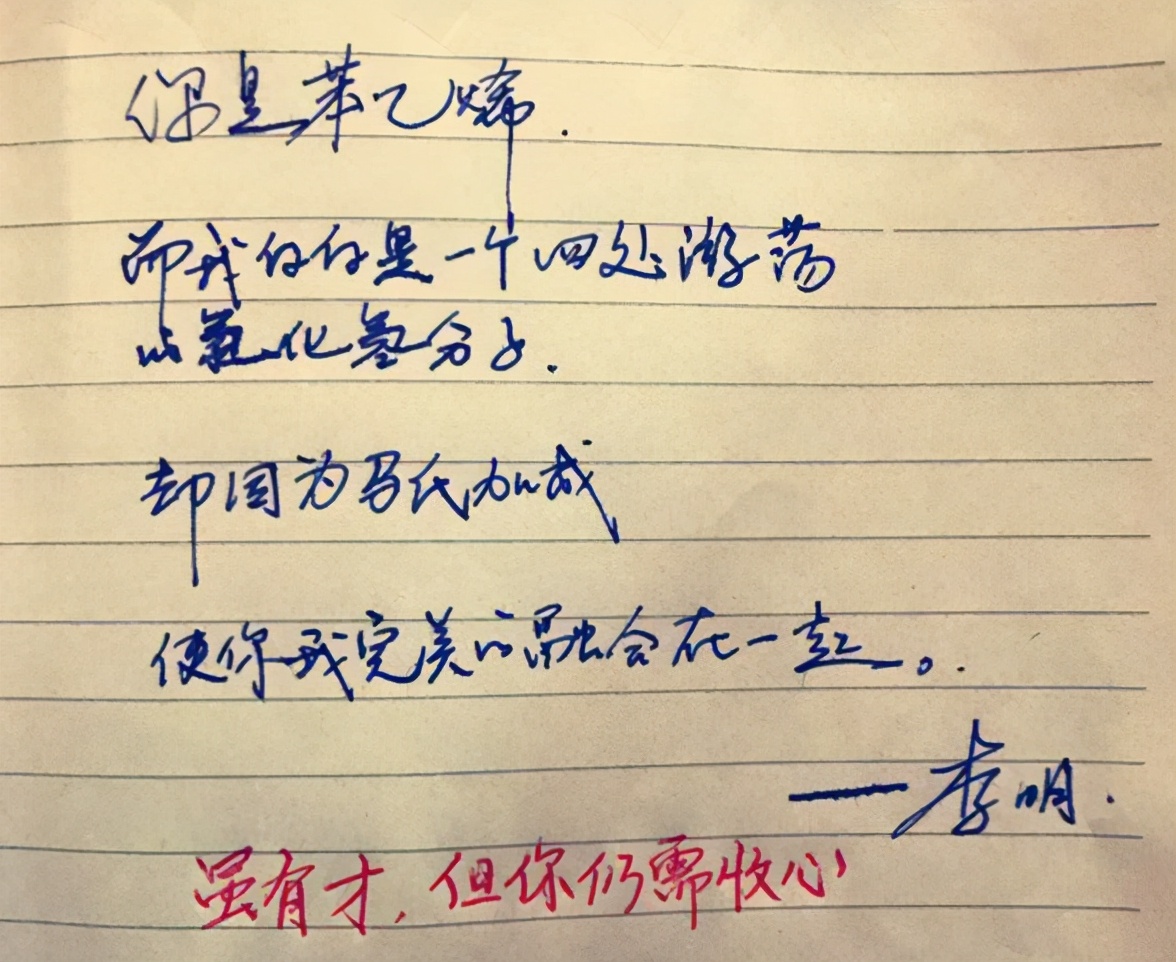 你是苯乙烯.
而我仅仅是一个四处游荡
的氯化氢分子.
却因为马氏加成
使你我完美的融合在一起。.
——李明.
虽有才,但你仍需收心